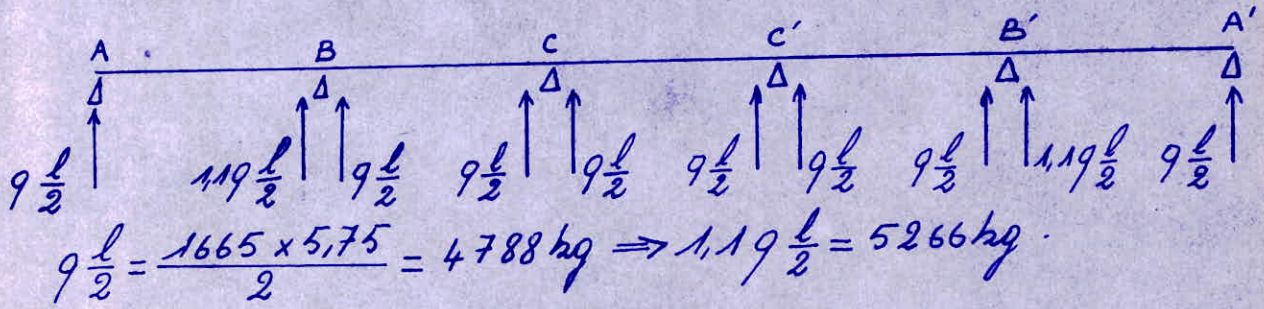 A B C C' B' A'
Δ Δ Δ Δ Δ Δ
q l/2 1,1q l/2 q l/2 q l/2 q l/2 q l/2 q l/2 q l/2 1,1q l/2 q l/2
q l/2 = 1665 x 5,75 / 2 = 4788 kg ⇒ 1,1q l/2 = 5266 kg.